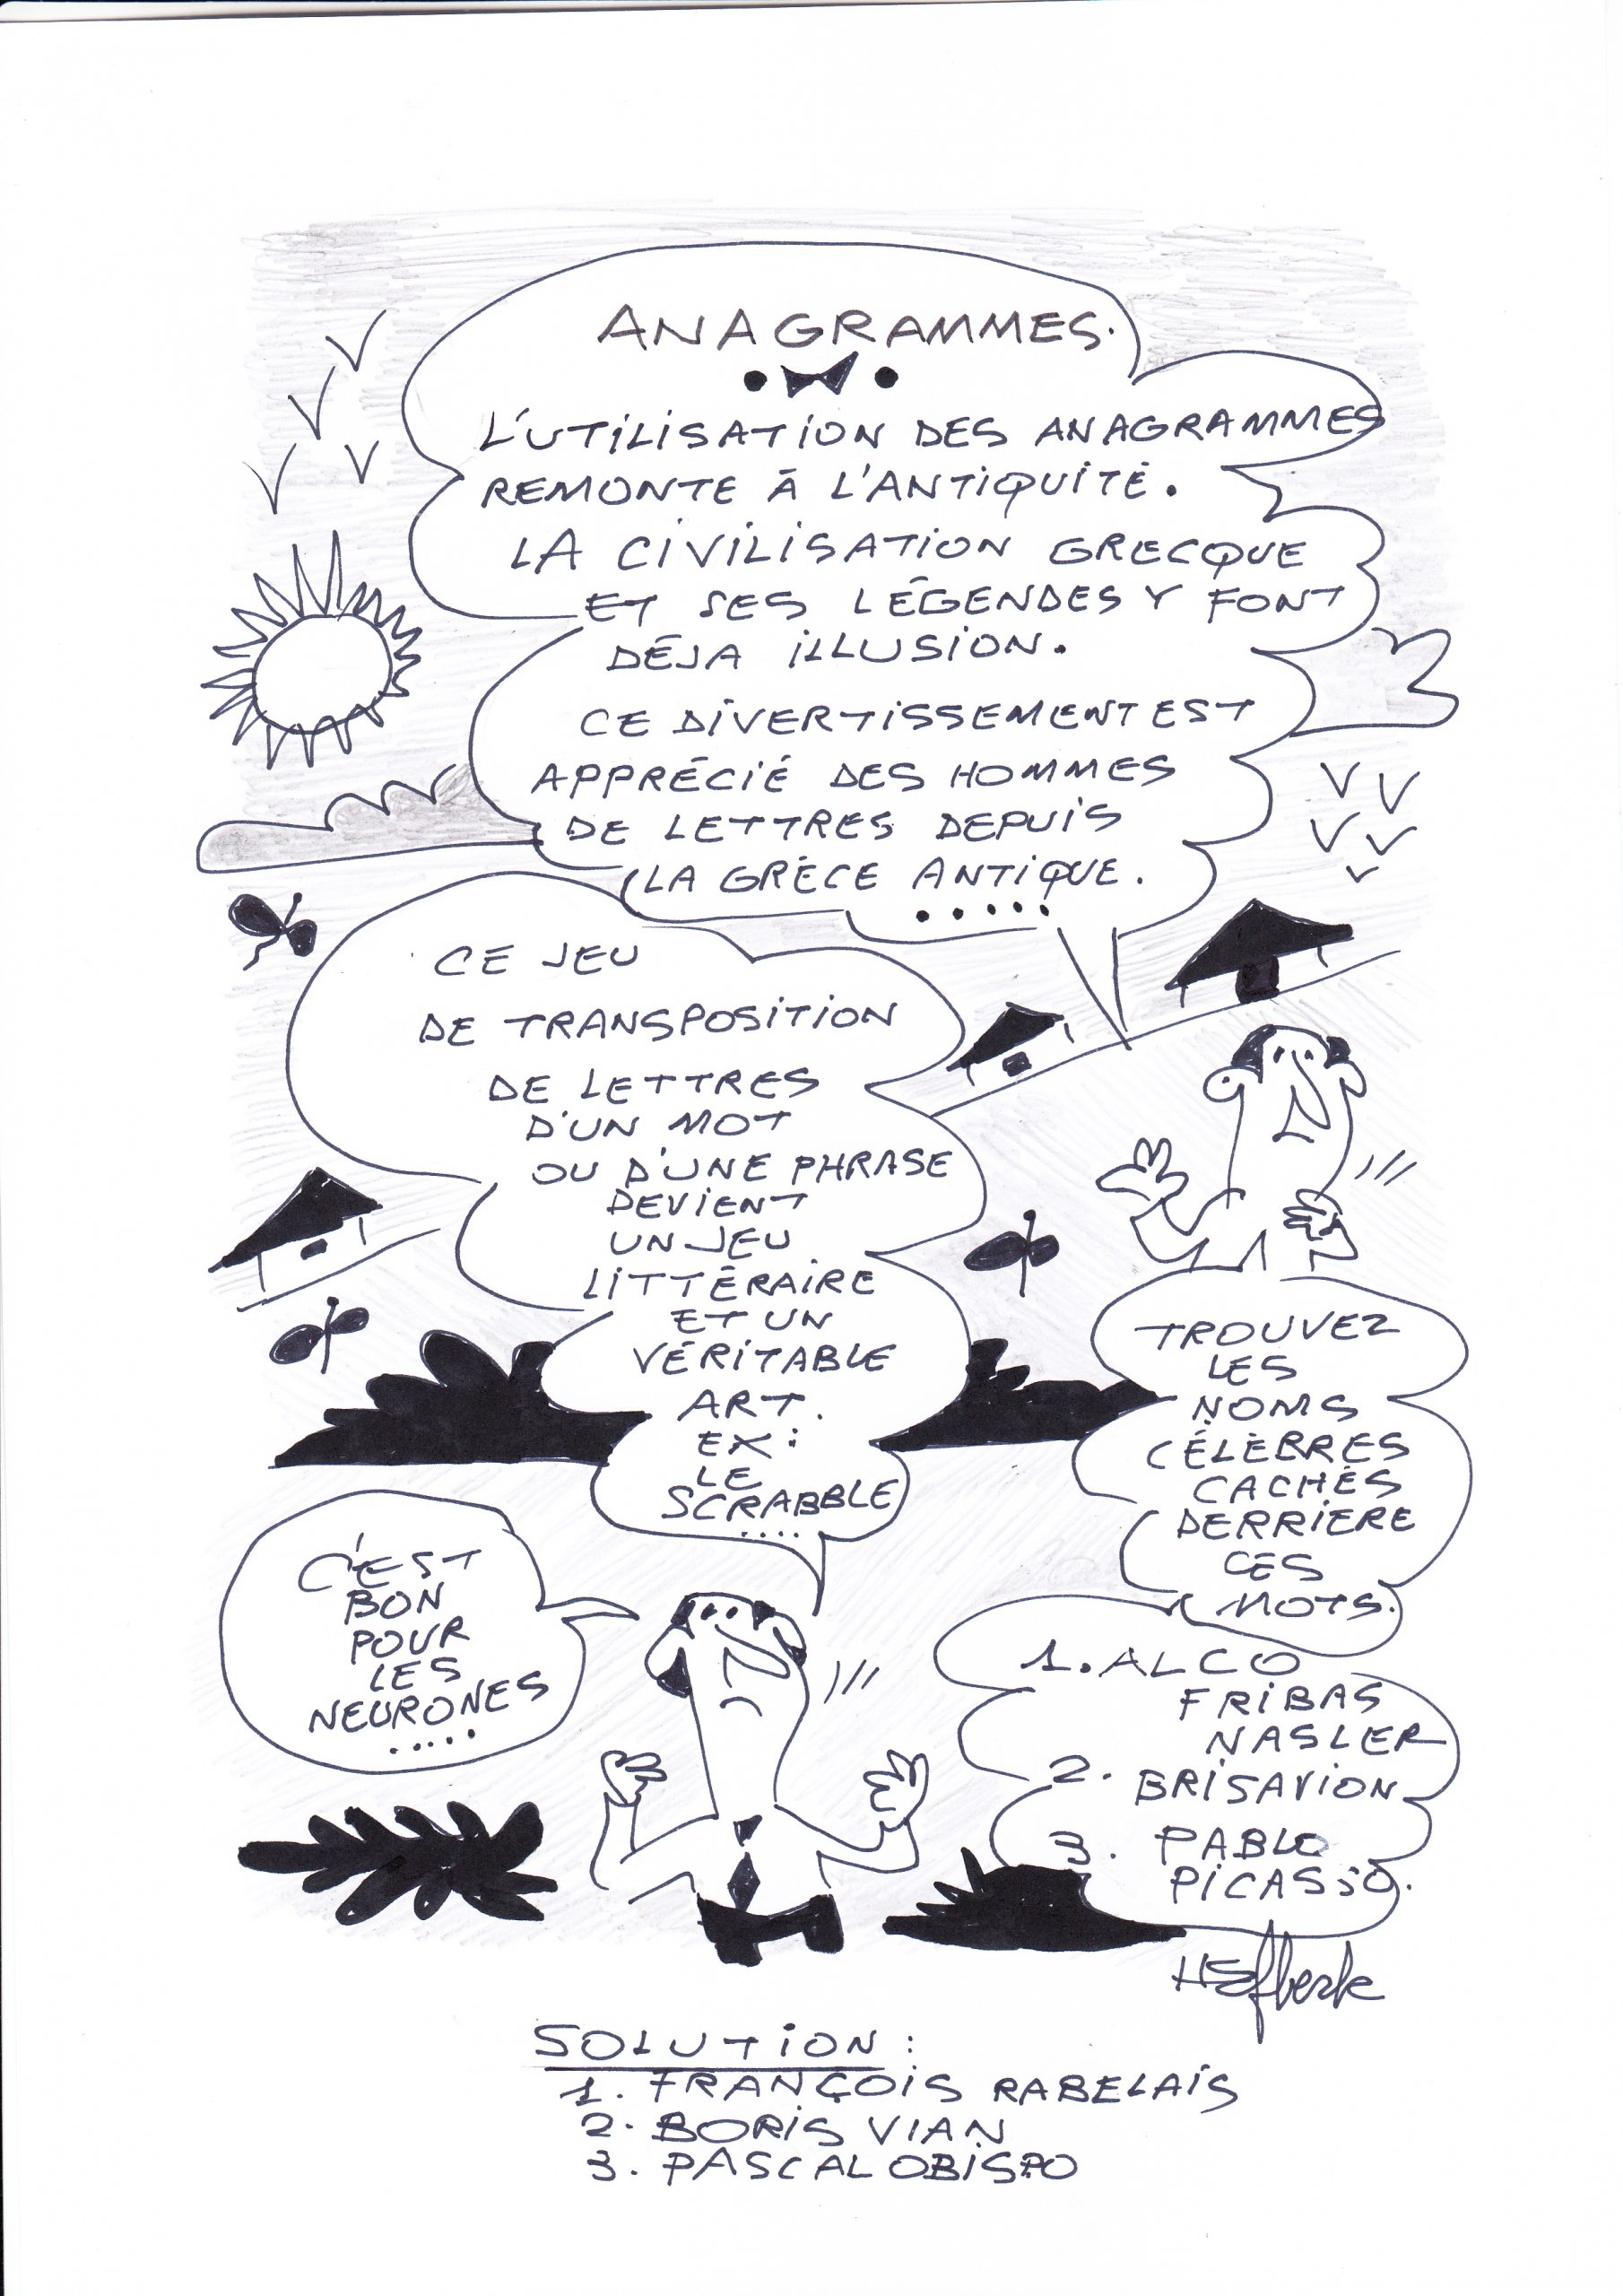 ANAGRAMMES.
L'UTILISATION DES ANAGRAMMES
REMONTE À L'ANTIQUITÉ.
LA CIVILISATION GRECQUE
ET SES LÉGENDES Y FONT
DÉJA ILLUSION.
CE DIVERTISSEMENT EST
APPRÉCIÉ DES HOMMES
DE LETTRES DEPUIS
LA GRÈCE ANTIQUE.
.....
CE JEU
DE TRANSPOSITION
DE LETTRES
D'UN MOT
OU D'UNE PHRASE
DEVIENT
UN JEU
LITTÉRAIRE
ET UN
VÉRITABLE
ART.
EX:
LE
SCRABBLE
....
C'EST
BON
POUR
LES
NEURONES
.....
TROUVEZ
LES
NOMS
CÉLÈBRES
CACHÉS
DERRIERE
CES
MOTS.
1. ALCO
FRIBAS
NASLER
2. BRISAVION
3. PABLO
PICASSO.
SOLUTION:
1. FRANÇOIS RABELAIS
2. BORIS VIAN
3. PASCAL OBISPO